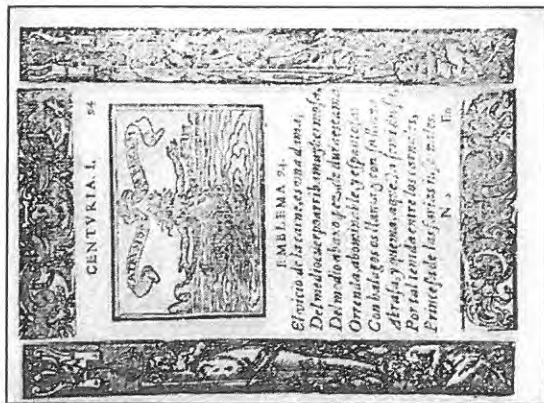 CENTVRIA. I. 94
EMBLEMA 94.
El vicio de la carne, es vna dama,
Del medio cuerpo arriba muy hermosa,
Del medio abaxo, pez de dura escama
Orrenda, abominable, y espantosa
Con halagos os llama, y con su llama
Abrasa, y quema, aquesta
Por tal tenida entre los carnales,
Princesa de las furias infernales.
N En